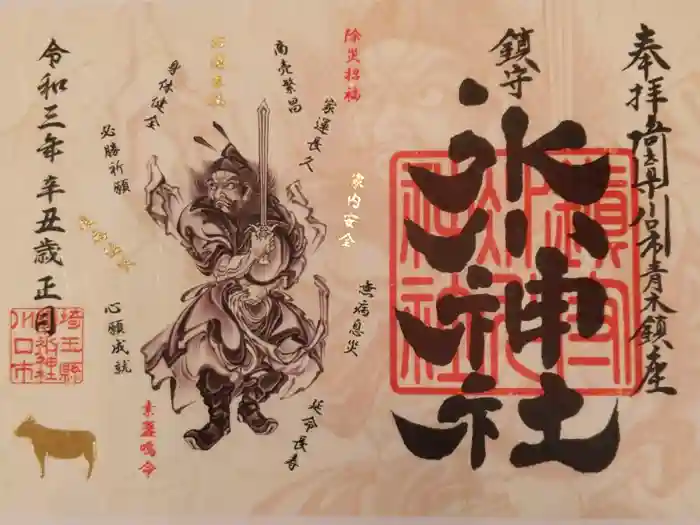 奉拝
埼玉県川口市青木鎮座
鎮守
氷川神社
鎮守氷川神社
除災招福
商売繁昌
家運長久
家内安全
無病息災
延命長寿
身体健全
必勝祈願
心願成就
素盞嗚命
令和三年辛丑歳正月
埼玉縣
氷川神社
川口市